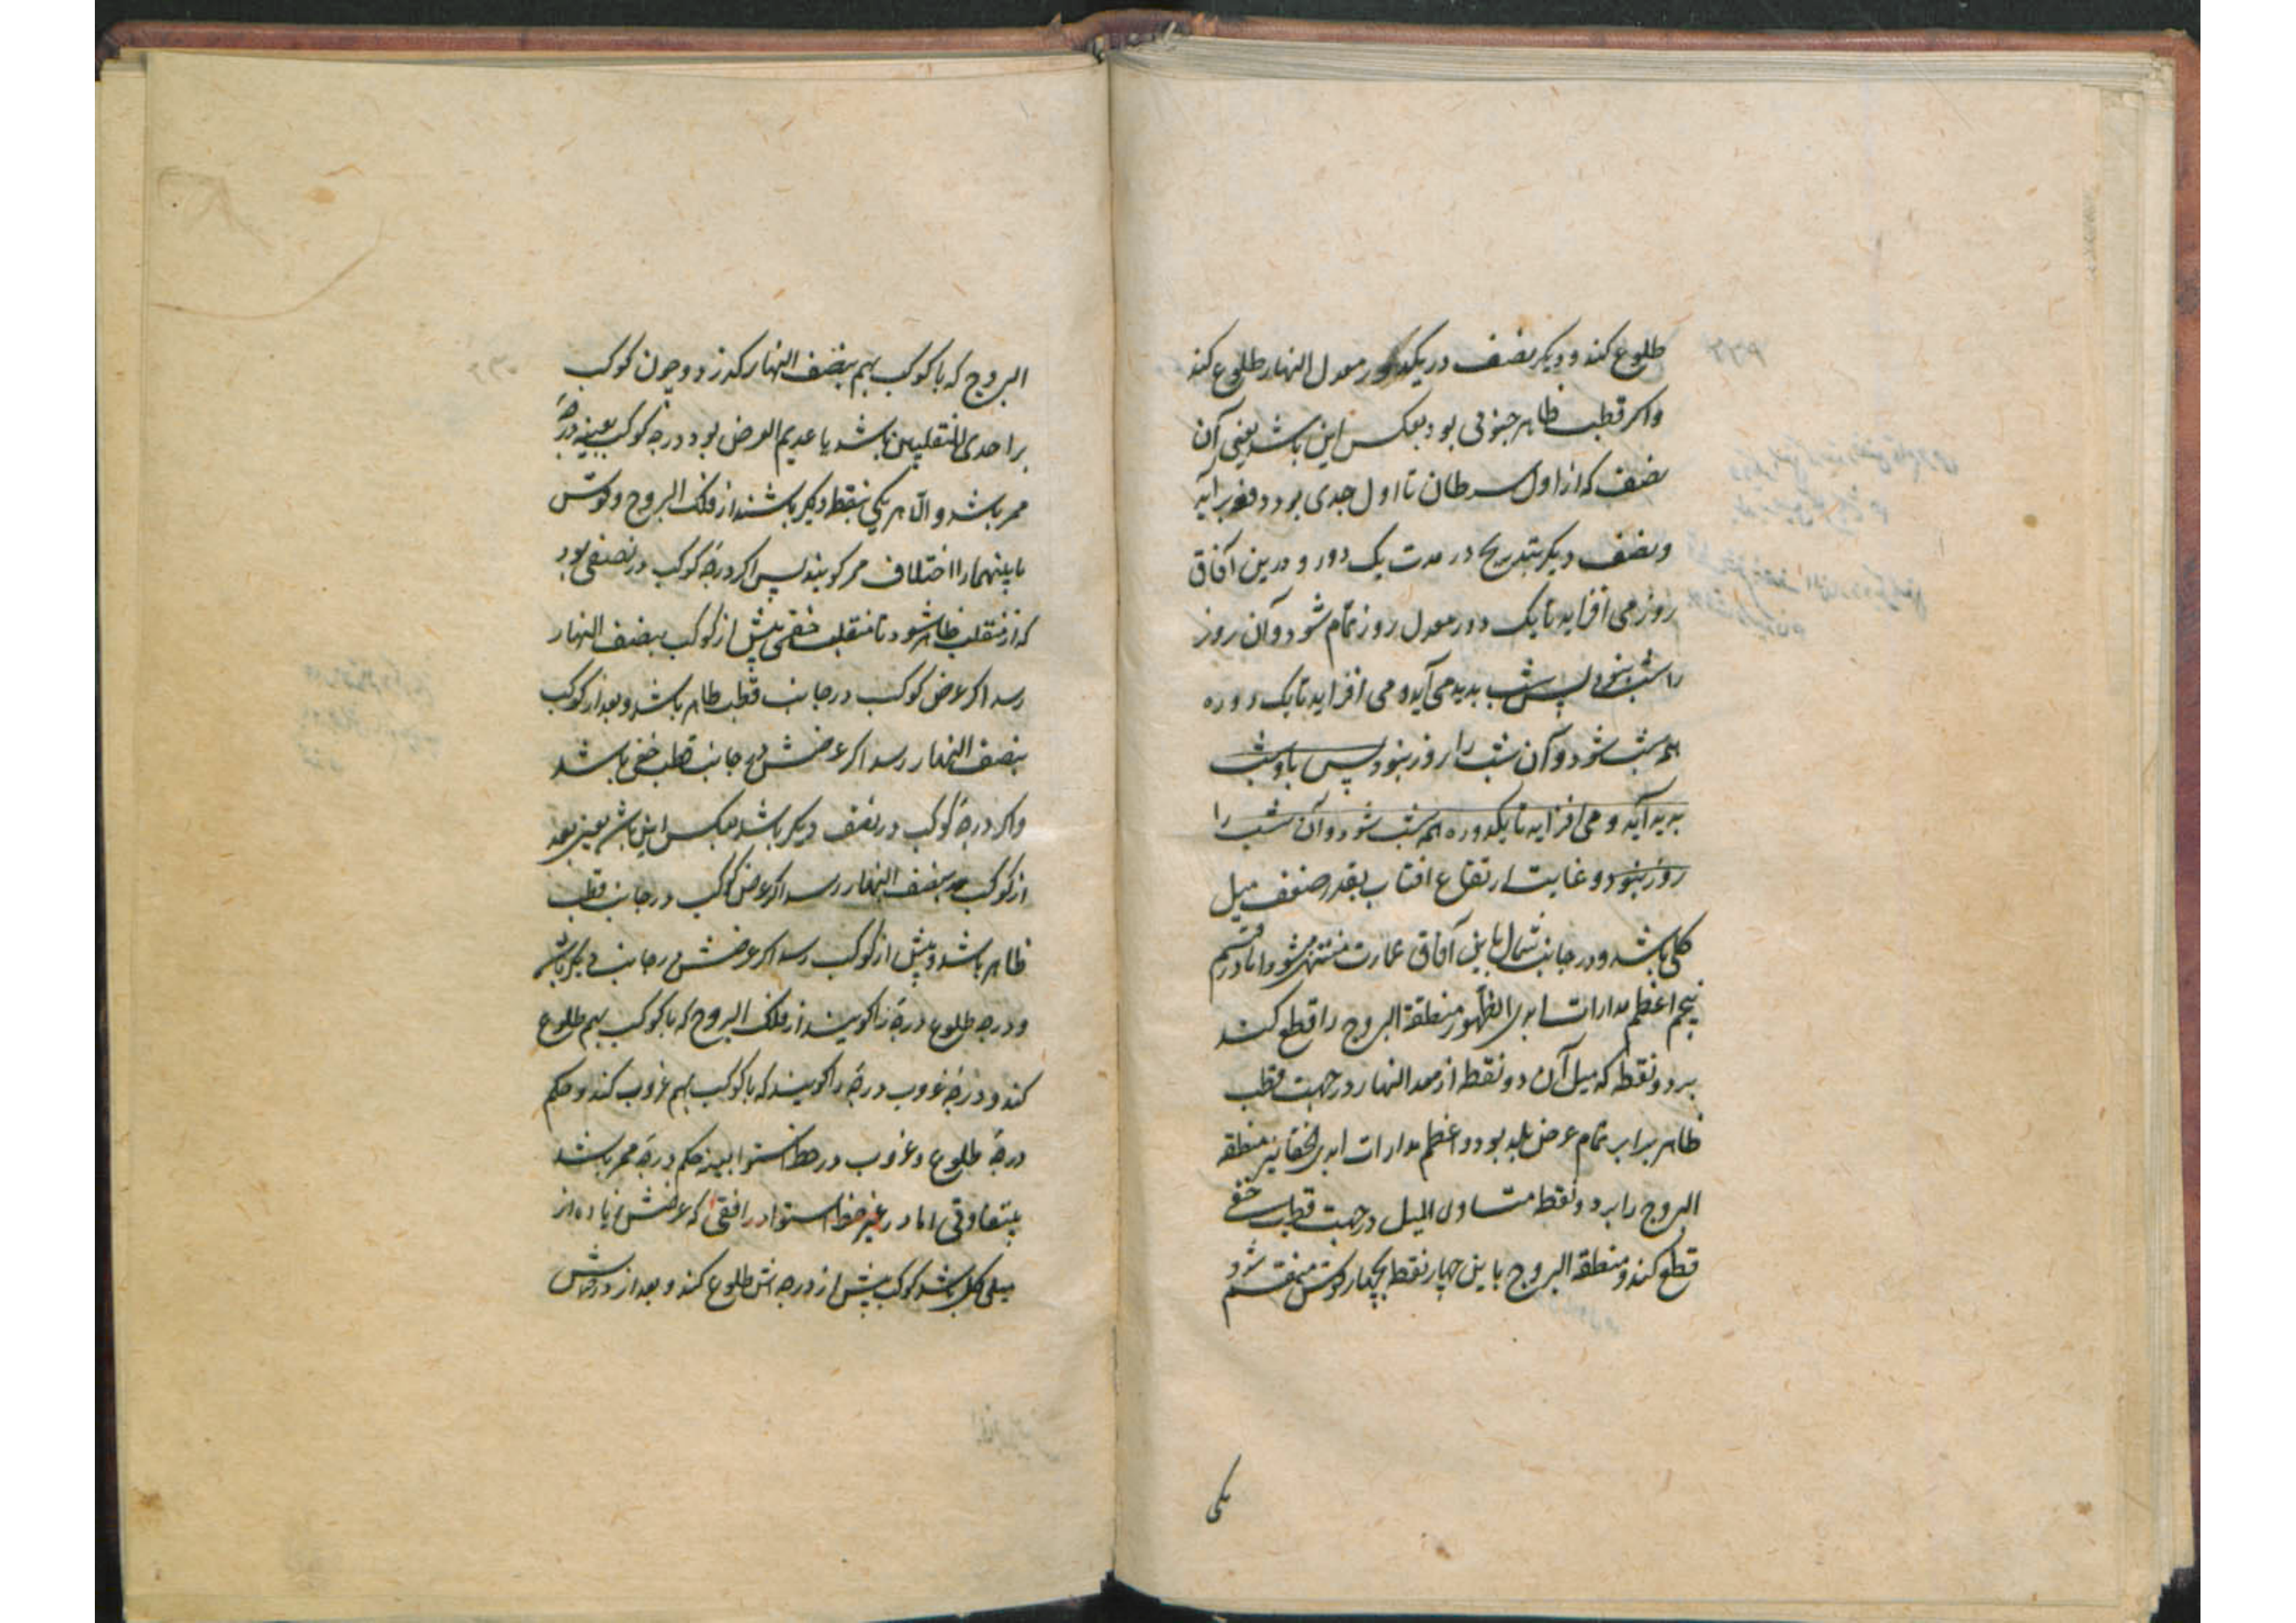 طلوع کند و دیکر نصف در یکدور معدل النهار طلوع کند
واکر قطب ظاهر جنوبی بود بعکس این باشد یعنی آن
نصف که از اول سرطان تا اول جدی بود دفعة برآید
و نصف دیکر بتدریج در مدت یک دور و درین آفاق
روز می افزاید تا یک دور معدل روز تمام شود و آن روز
را شب نبود پس شب بدید می آید و می افزاید تا یک دوره
هم شب شود و آن شب را روز نبود پس باز شب
بدید آید و می افزاید تا یکدوره هم شب شود و آن شب را
روز نبود و غایت ارتفاع افتاب بقدر ضعف میل
کلی باشد و در جانب شمال باین آفاق عمارت منتهی شود اما در قسم
پنجم اعظم مدارات ابدی الظهور منطقة البروج را قطع کند
بر دو نقطه که میل آن دو نقطه از معدل النهار در جهت قطب
ظاهر برابر تمام عرض بلد بود و اعظم مدارات ابدی الخفا نیز منطقه
البروج را بر دو نقطه متساوی المیل در جهت قطب خفی
قطع کند و منطقة البروج باین چهار نقطه بچهار قوس منقسم شود
یکی
البروج که با کوکب بهم بنصف النهار کذرد و چون کوکب
بر احدی المنقلبین باشد یا عدیم العرض بود درجه کوکب بعینه درجهٔ
ممر باشد و الا هر یکی نقطه دیکر باشند از فلک البروج و قوس
ما بینهما را اختلاف ممر کویند پس اکر درجه کوکب در نصفی بود
که از منقلب ظاهر شود تا منقلب خفی پیش از کوکب بنصف النهار
رسد اکر عرض کوکب در جانب قطب ظاهر باشد و بعد از کوکب
بنصف النهار رسد اکر عرضش در جانب قطب خفی باشد
واکر درجهٔ کوکب در نصف دیکر باشد بعکس این باشد یعنی بعد
از کوکب بنصف النهار رسد اکر عرض کوکب در جانب قطب
ظاهر باشد و پیش از کوکب رسد اکر عرضش در جانب دیکر باشد
و درجه طلوع درجهٔ را کویند از فلک البروج که با کوکب بهم طلوع
کند و درجهٔ غروب درجهٔ را کویند که با کوکب بهم غروب کند و حکم
درجهٔ طلوع و غروب در خط استوا بعینه حکم درجهٔ ممر باشد
بتفاوتی اما در غیر خط استوا در افقی که عرضش زیاده از
میل کلی باشد کوکب پیش از درجه اش طلوع کند و بعد از درجه اش